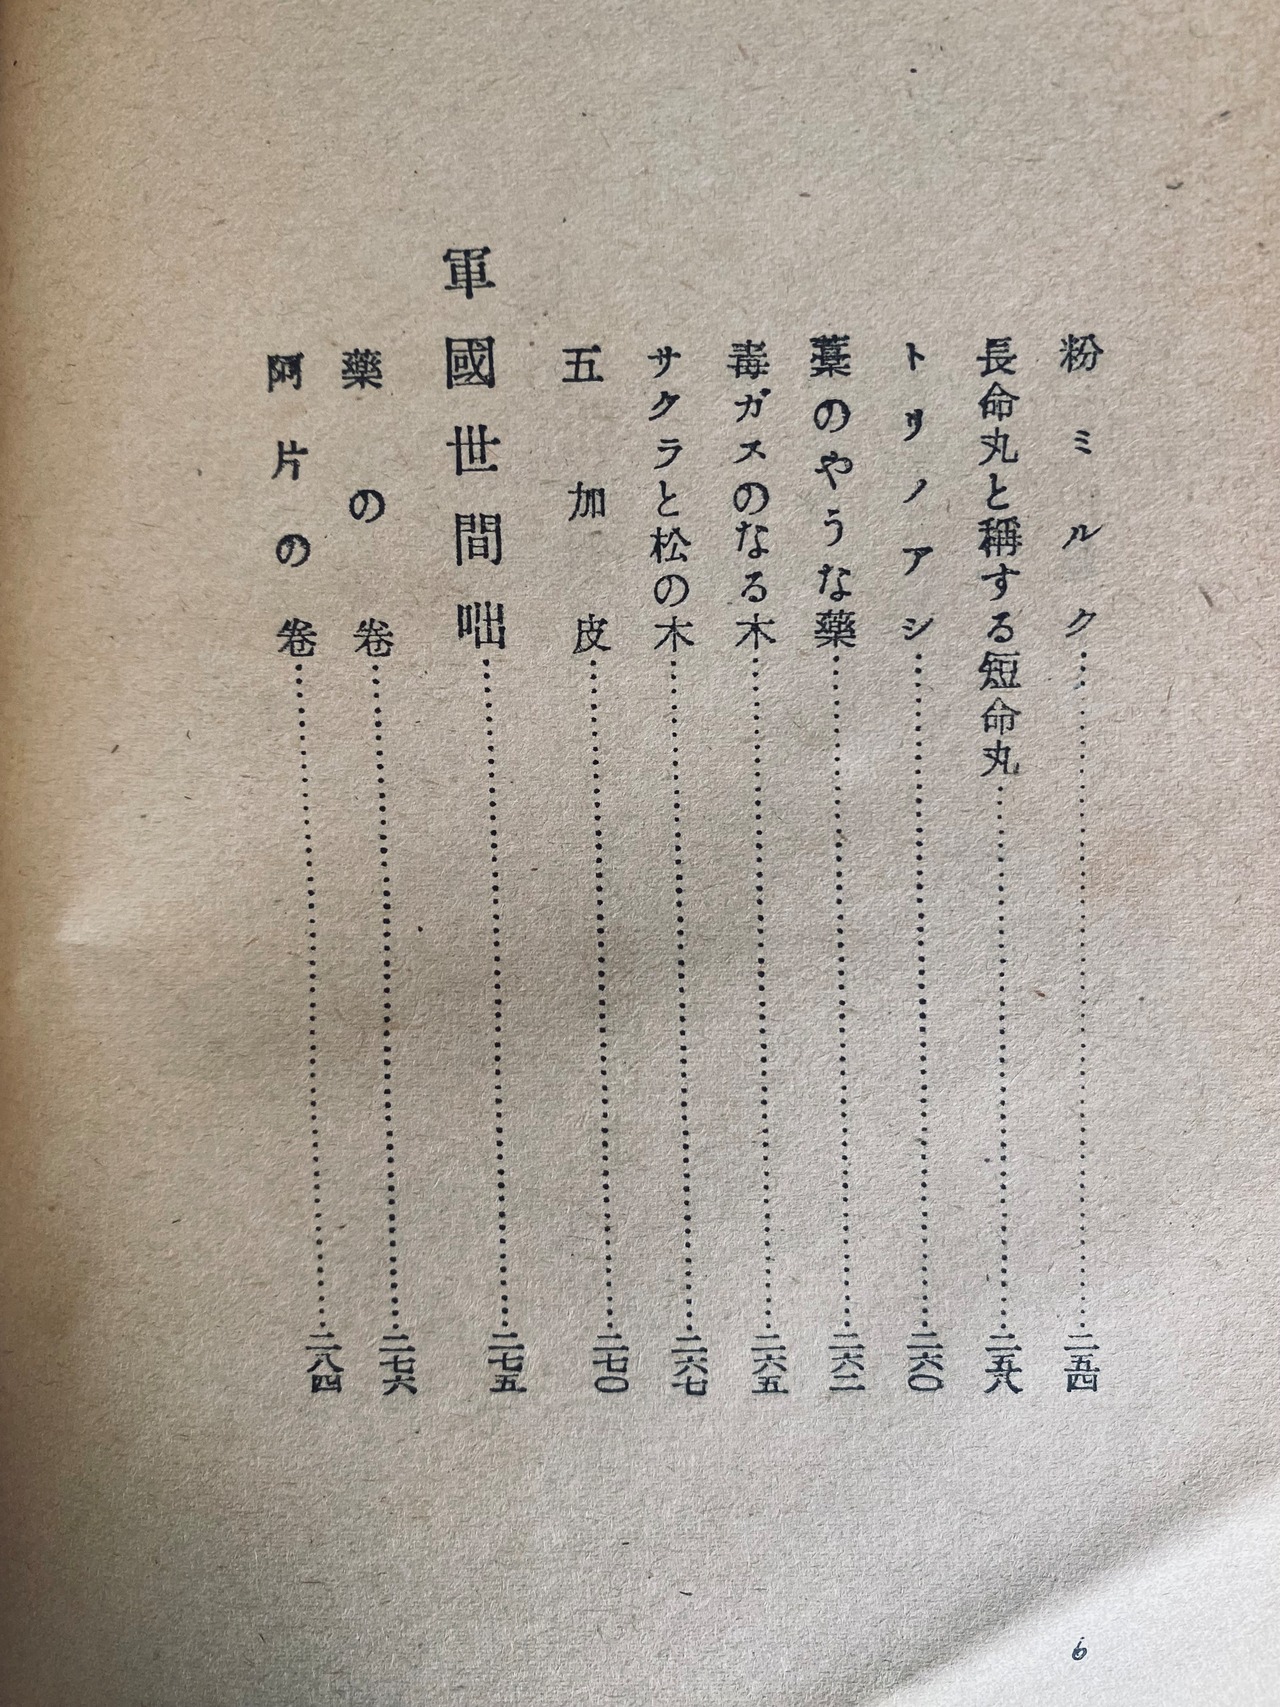 粉ミルク……………二五四
長命丸と稱する短命丸……………二五八
トリノアシ……………二六〇
藁のやうな藥……………二六二
毒ガスのなる木……………二六五
サクラと松の木……………二六七
五加皮……………二七〇
軍國世間咄……………二七五
藥の卷……………二七六
阿片の卷……………二八四
6